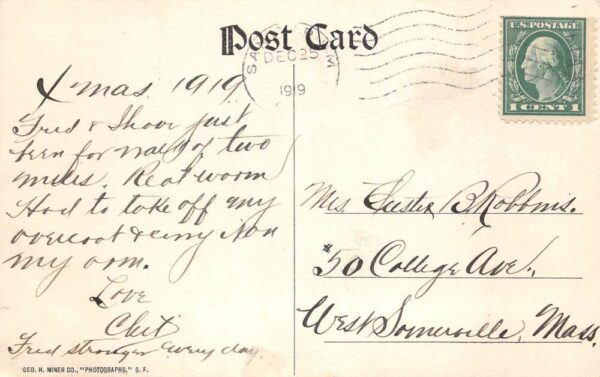 Post Card
U.S. POSTAGE
1 CENT 1
DEC 25
1919
X'mas, 1919
Fred & I have just
been for walk of two
miles. Real warm
Had to take off my
overcoat & carry it on
my arm.
Love
Chet
Fred stronger every day.
Mrs. B. Robbins.
50 College Ave.,
West Somerville, Mass.
GEO. H. MINER CO., "PHOTOGRAPHS," S. F.